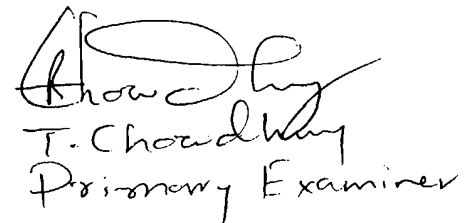 Chowdhury
T. Chowdhury
Primary Examiner